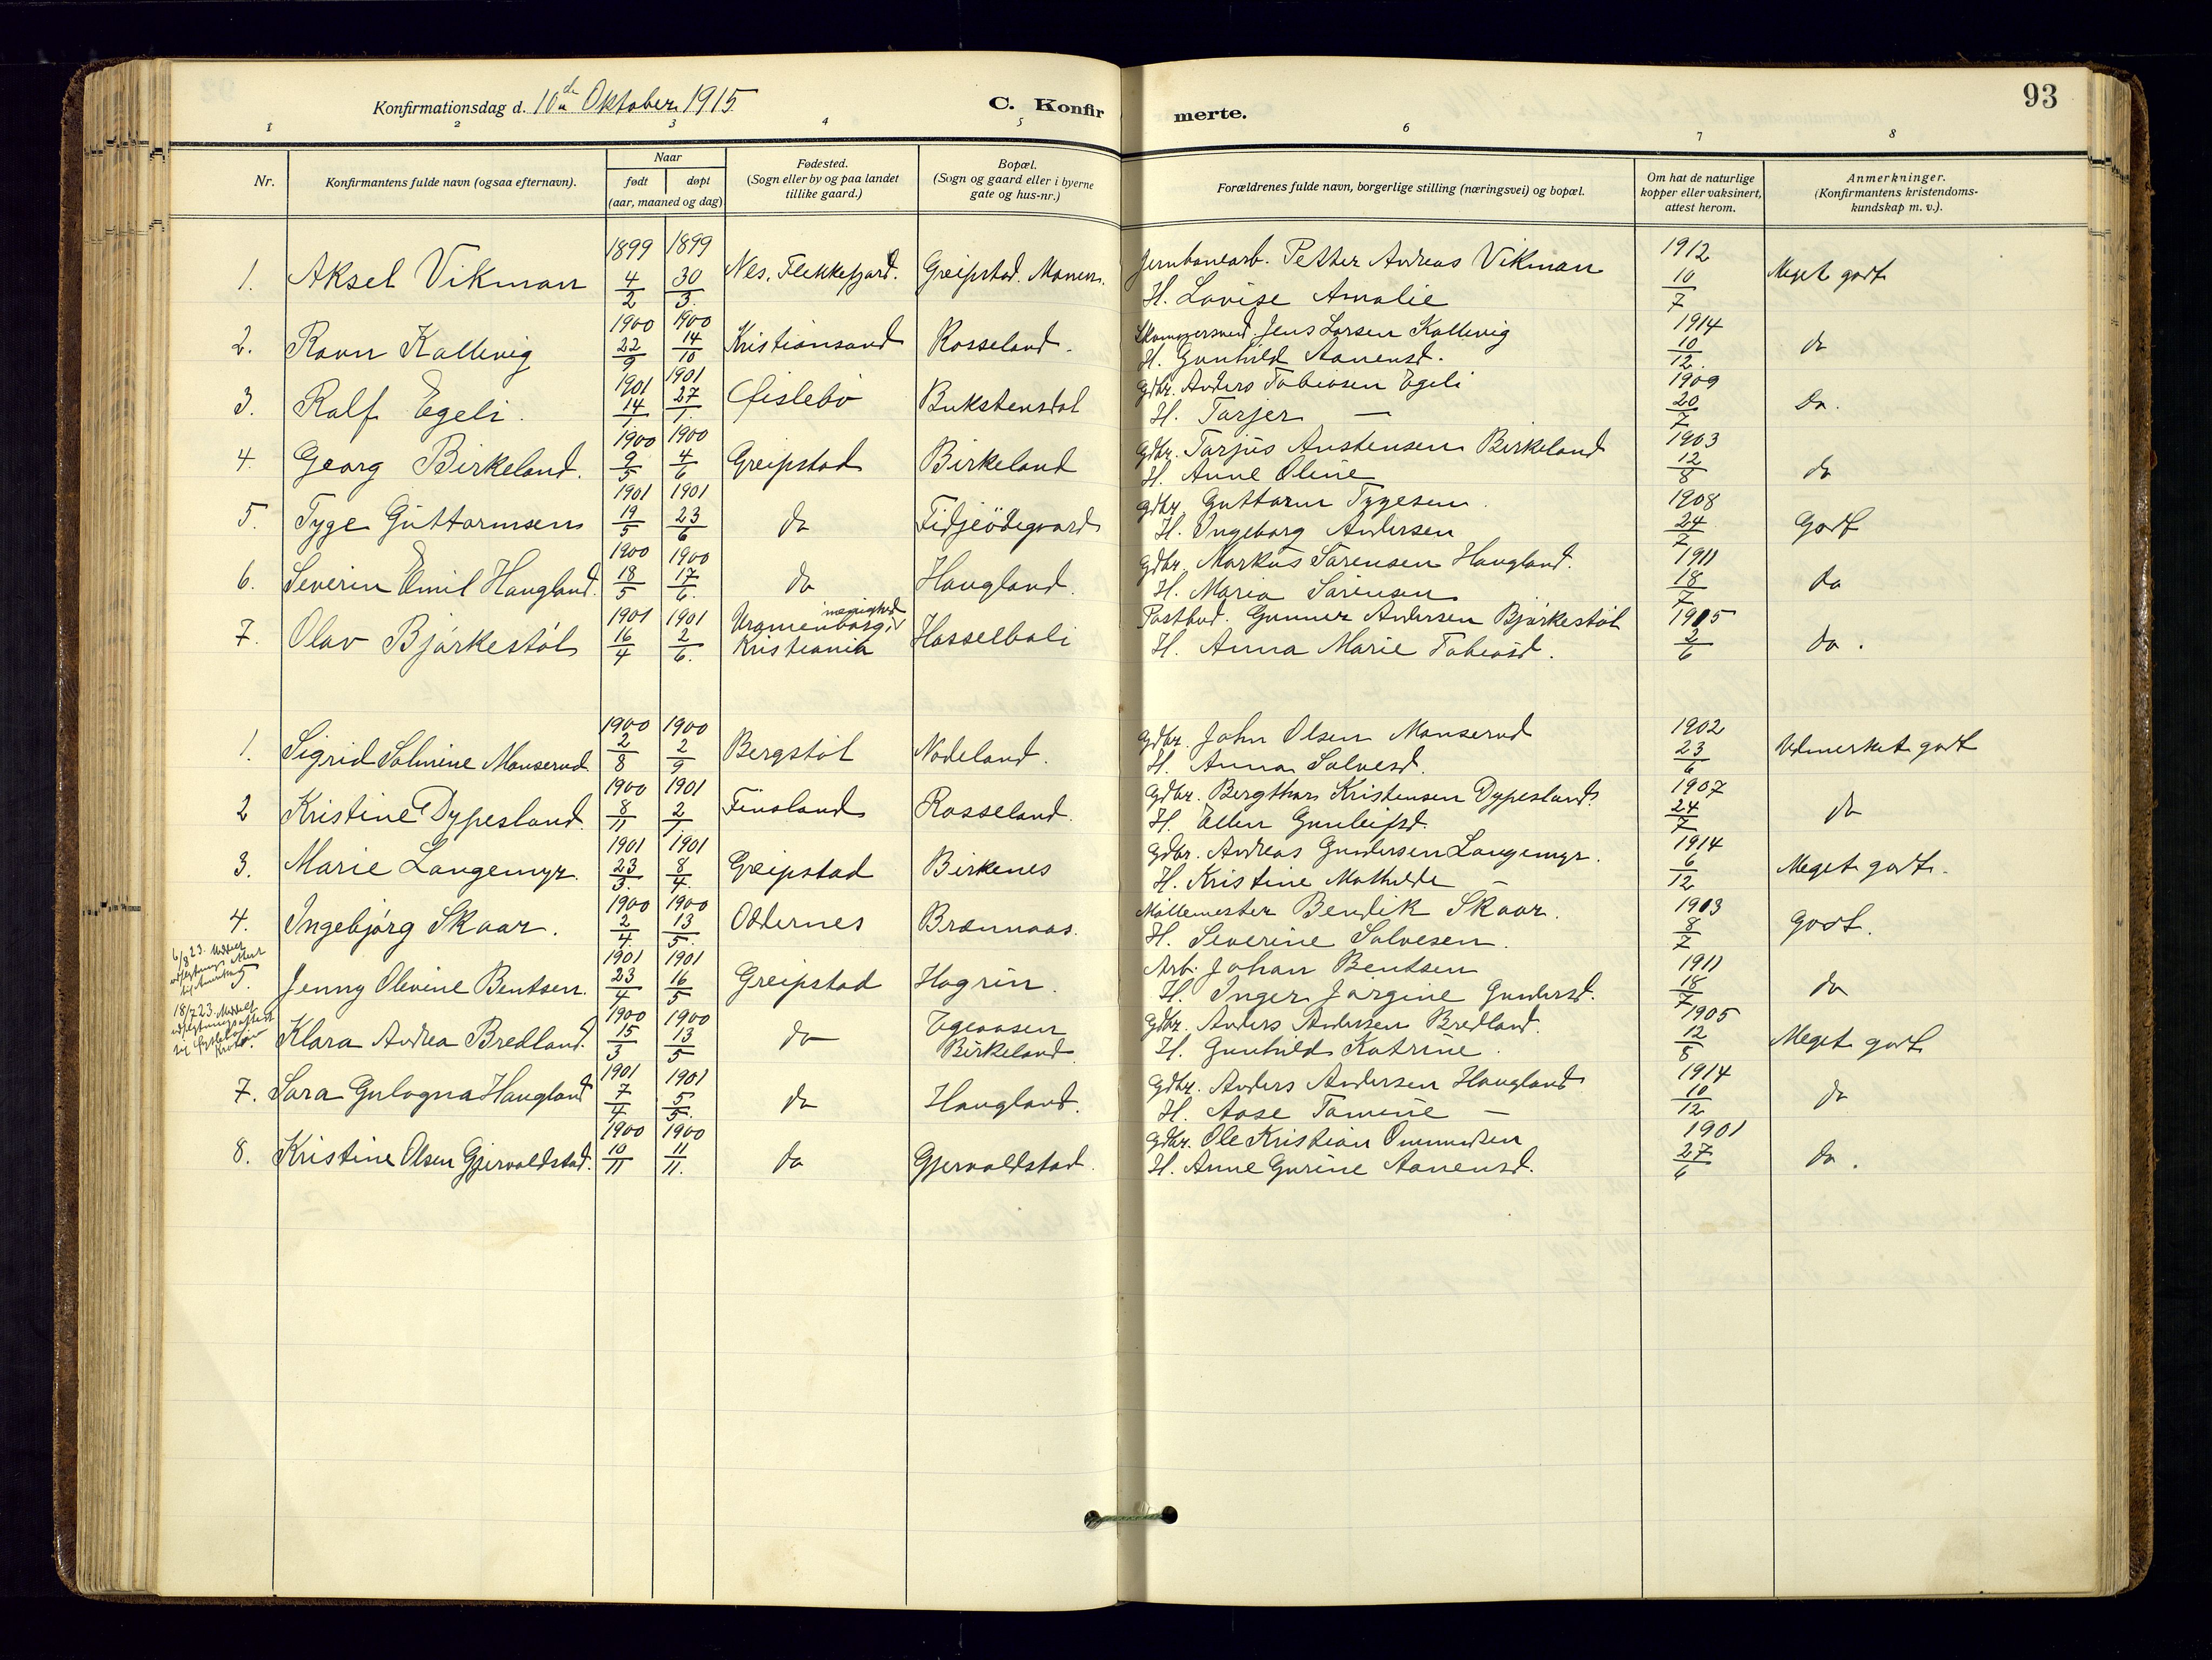 Konfirmationsdag d. 10de Oktober 1915
C. Konfirmerte.
93
1 2 3 4 5 6 7 8
Nr.
Konfirmantens fulde navn (ogsaa efternavn).
Naar
født døpt
(aar, maaned og dag)
Fødested.
(Sogn eller by og paa landet
tillike gaard.)
Bopæl.
(Sogn og gaard eller i byerne
gate og hus-nr.)
Forældrenes fulde navn, borgerlige stilling (næringsvei) og bopæl.
Om hat de naturlige
kopper eller vaksinert,
attest herom.
Anmerkninger.
(Konfirmantens kristendoms-
kundskap m. v.).
1. Aksel Vikman 1899 4/2 1899 30/3. Nes, Flekkefjord. Greipstad. Monen. Jernbanearb. Petter Andreas Vikman 1912 10/7 Meget godt
H. Lovise Amalie
2. Ravn Kallevig 1900 22/9 1900 14/10 Kristiansand Rosseland. Jens Larsen Kallevig 1914 10/12. do
H. Gunhild Aanensd.
3. Ralf Egeli. 1901 14/1 1901 27/1. Øislebø Bukstensdal Gdbr. Anders Tobiasen Egeli 1909 20/7 Do.
H. Tarjer —
4. Georg Birkeland. 1900 9/5 1900 4/6 Greipstad Birkeland Gdbr. Tarjus Austensen Birkeland 1903 12/8 do
H. Anne Oline
5. Tyge Guttormsen 1901 19/5 1901 23/6 do Fidjeødegaard Gdbr. Guttorm Tygesen. 1908 24/7 Godt
H. Ingeborg Andersen
6. Severin Emil Haugland. 1900 18/5 1900 17/6. do Haugland. Gdbr. Markus Sørensen Haugland. 1911 18/7 do
H. Maria Sørensen
7. Olav Bjørkestøl 1901 16/4 1901 2/6. Uranienborg menighed Kristiania Hasselbali Postbud. Gunner Andersen Bjørkestøl 1905 2/6 do.
H. Anna Marie Tobiasd.
1. Sigrid Solmine Monserud 1900 2/8 1900 2/9 Bergstøl Nodeland. Gdbr. John Olsen Monserud 1902 23/6 Udmerket godt
H. Anna Salvesd.
2 Kristine Dypesland. 1900 8/11 1901 2/1 Finsland Rosseland. Gdbr. Bergthor Kristensen Dypesland. 1907 24/7 do
H. Ellen Gunleifsd.
3. Marie Langemyr. 1901 23/3. 1901 8/4. Greipstad Birkenes Gdbr. Andreas Gundersen Langemyr. 1914 6/12 Meget godt.
H. Kristine Mathilde —
4. Ingebjørg Skaar. 1900 2/4. 1900 13/5. Oddernes Brønnaas. Møllemester Bendik Skaar. 1903 8/7 Godt.
H. Severine Salvesen.
6/8 23.
5. Jenny Olevine Bentsen. 1901 23/4 1901 16/5 Greipstad Hagrin. Arb. Johan Bentsen 1911 18/7 do
H. Inger Jørgine Gundersd.
18/7 23. Meddelt
Klara Andrea Bredland. 1900 15/3 1900 13/5 do Egeaasen Birkeland. Gdbr. Anders Andersen Bredland. 1905 12/8 Meget godt
H. Gunhild Katrine.
7. Sara Gulogna Haugland 1901 7/4 1901 5/5. do Haugland. Gdbr. Anders Andersen Haugland 1914 10/12 do
H. Aase Tomine —
8. Kristine Olsen Gjervoldstad. 1900 10/11 1900 11/11. do Gjervoldstad. Gdbr. Ole Kristian Ommundsen 1901 27/6 do.
H. Anne Gurine Aanensd.